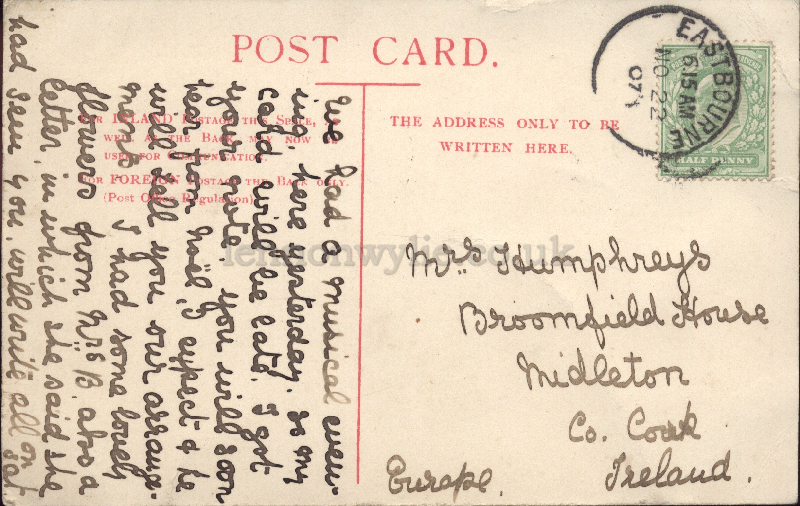 POST CARD.
FOR INLAND POSTAGE THIS SPACE, AS
WELL AS THE BACK, MAY NOW BE
USED FOR COMMUNICATION.
FOR FOREIGN POSTAGE THE BACK ONLY.
(Post Office Regulation).
THE ADDRESS ONLY TO BE
WRITTEN HERE.
EASTBOURNE
6.15 AM
NO 22
07
HALF PENNY
We had a musical even-
ing, here yesterday. so my
card will be late. I got
your note. you will soon
hear from Noël, I expect & he
will tell you our arrange-
ments. I had some lovely
flowers from Mrs B. also a
letter, in which she said she
had seen you, will write all on
Sat
Mrs Humphreys
Broomfield House
Midleton
Co. Cork
Ireland.
Europe.
lennonwylie.co.uk